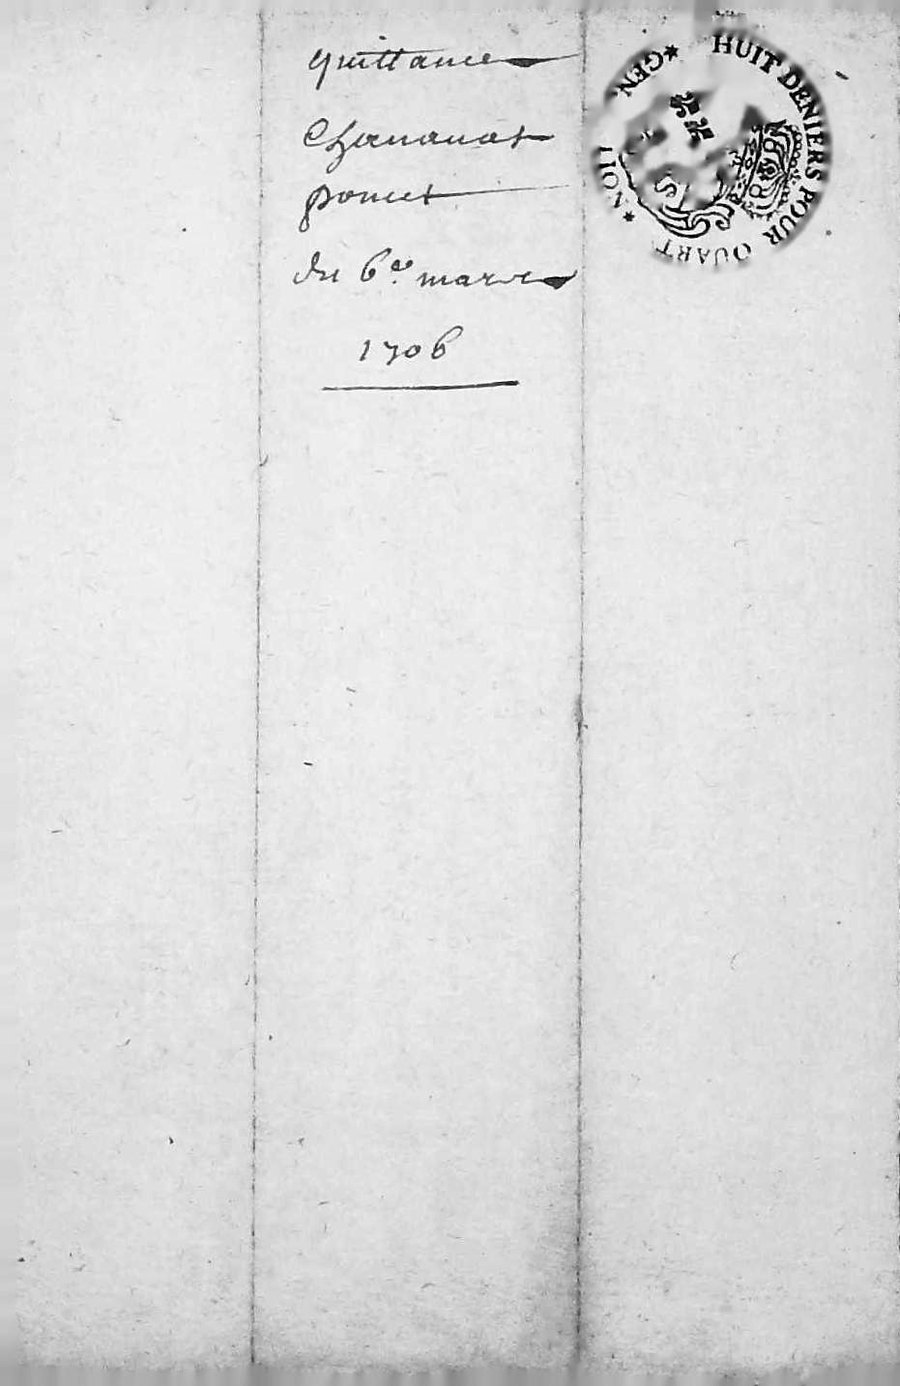 quittance
Chananat
poncet
du 6e. mars
1706
HUIT DENIERS POUR QUART
GEN.